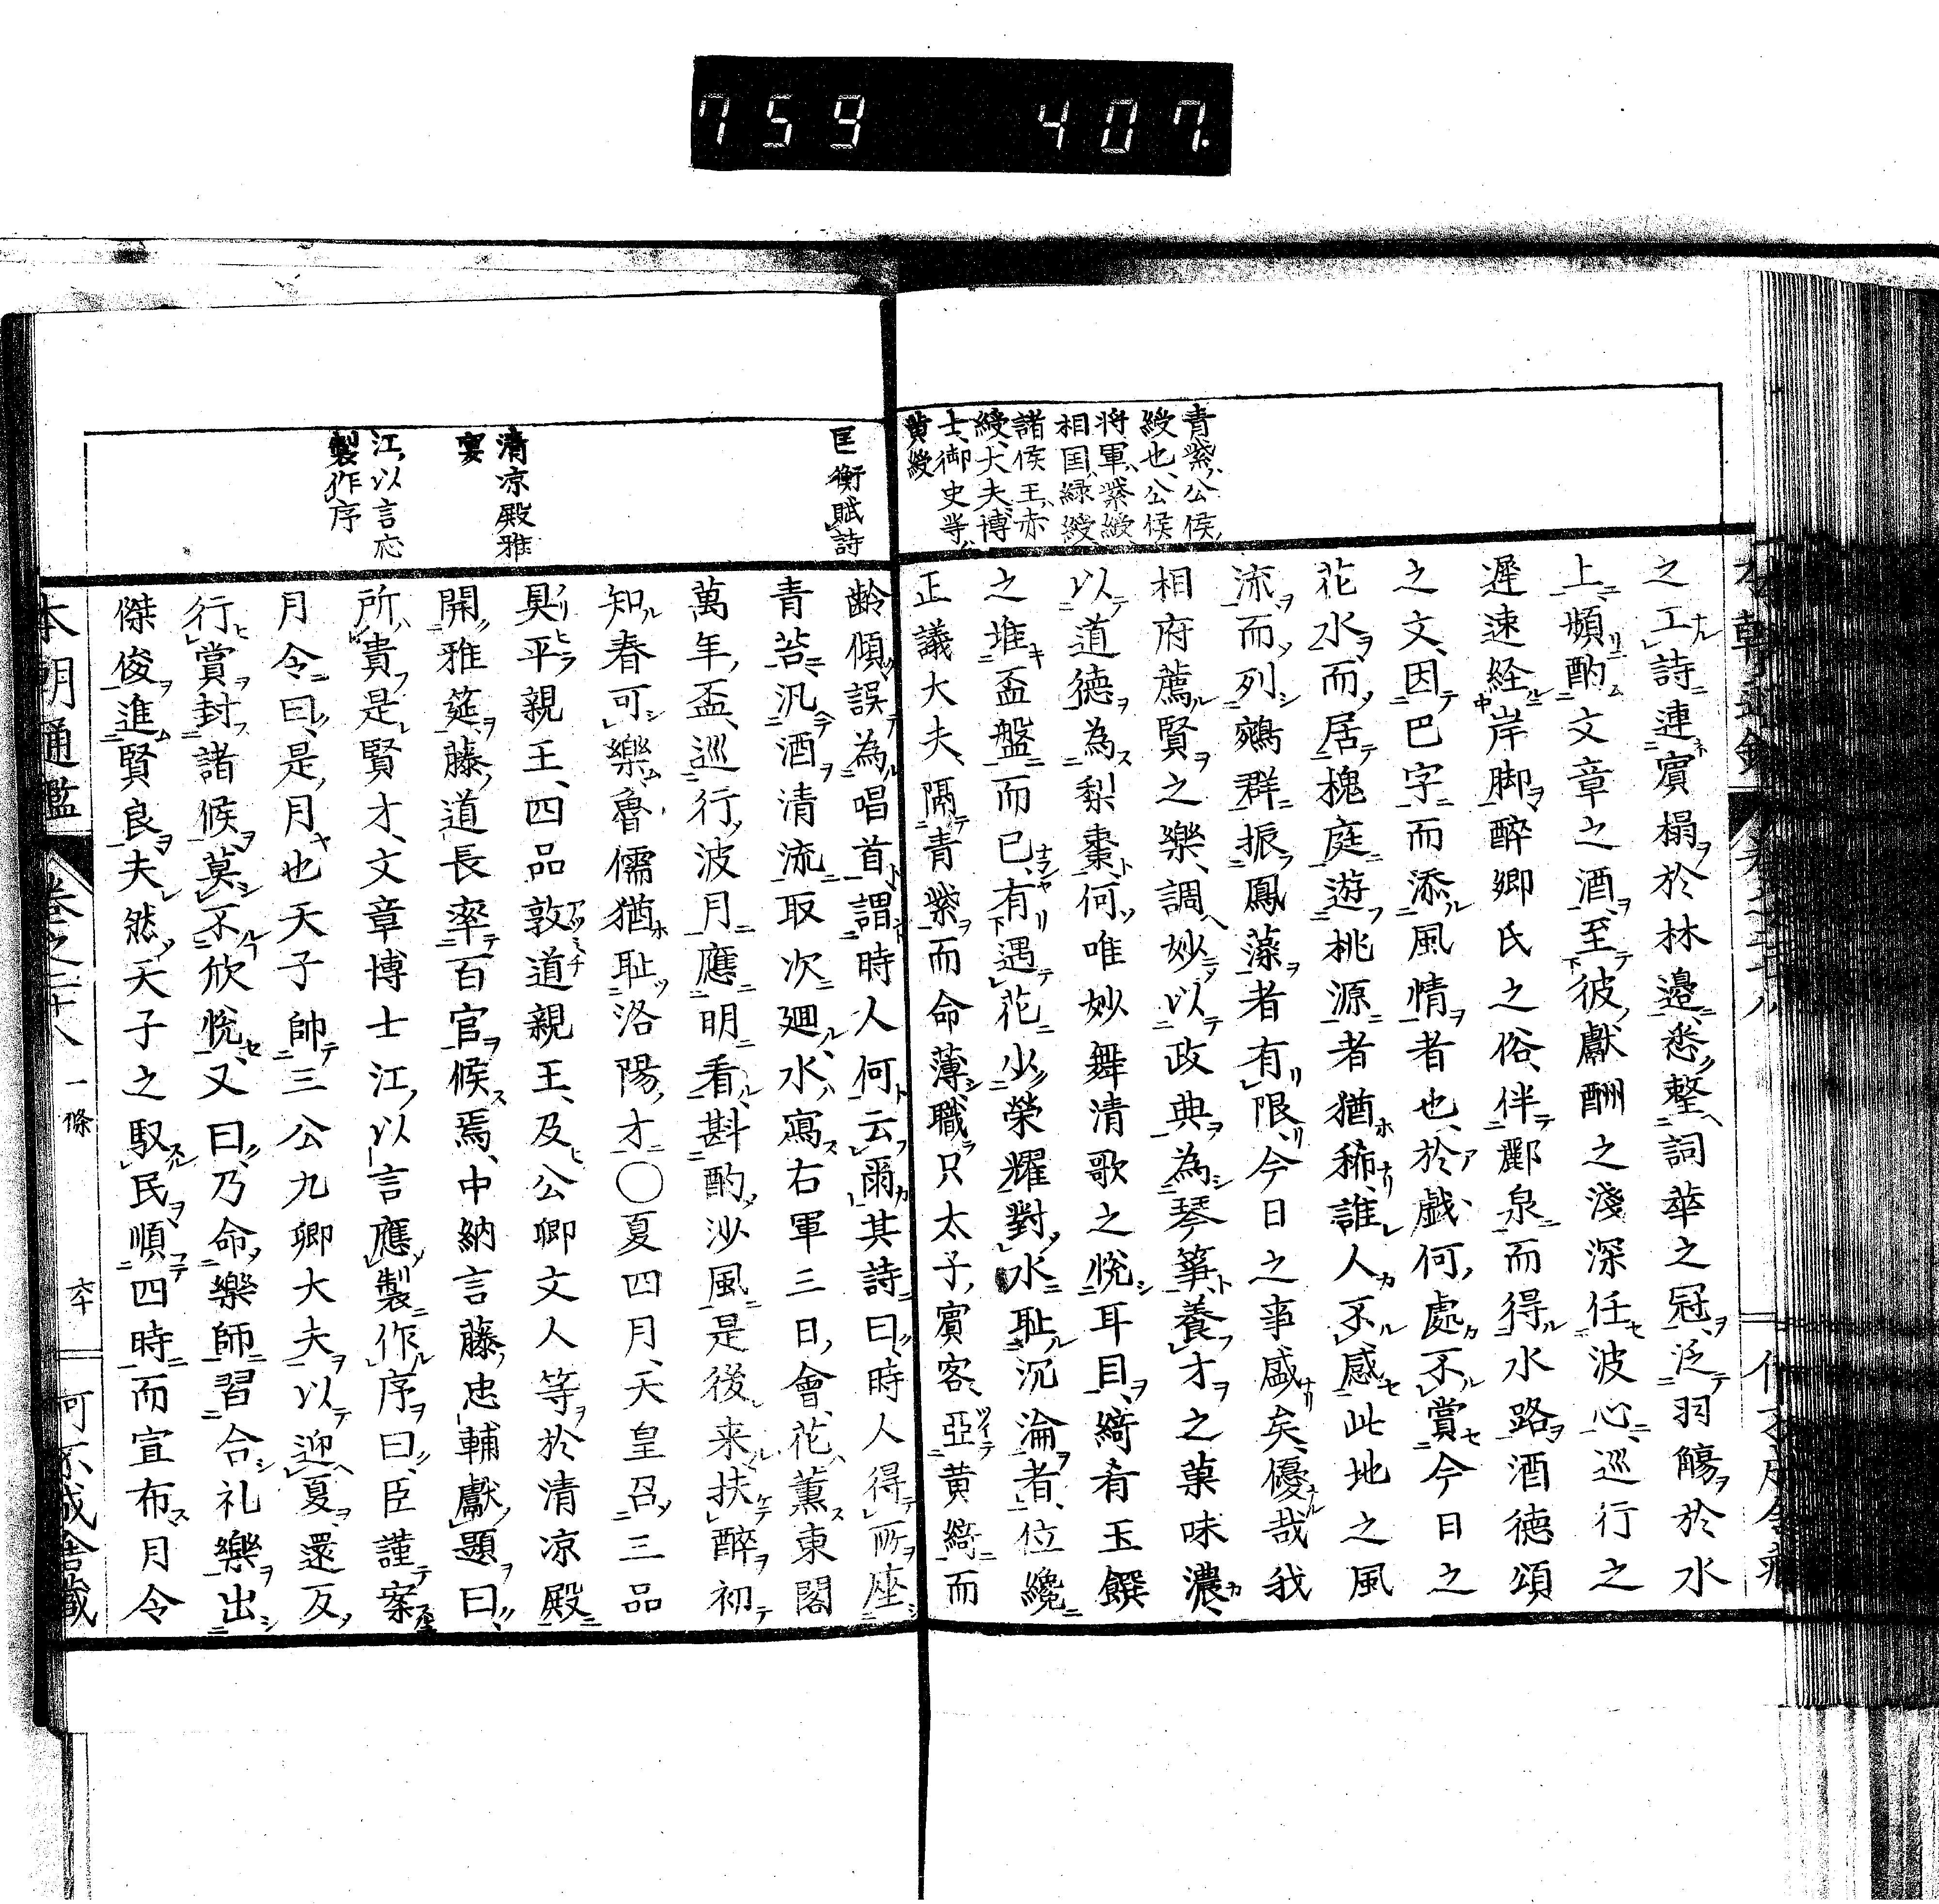 759 407.
青紫、公侯
綬也、公侯
将軍、紫綬
相国、緑綬
諸侯王、赤
綬、大夫、博
士、御史等、
黄綬
之工詩連賓榻於林邉、悉整詞華之冠、泛羽觴於水
上、頻酌文章之酒、至彼獻酬之淺深任波心、巡行之
遲速経岸脚、醉郷氏之俗、伴酈泉而得水路、酒徳頌
之文、因巴字而添風情者也、於戯、何處不賞今日之
花水、而居槐庭遊桃源者猶稀、誰人不感此地之風
流、而列鵷群振鳳藻者有限、今日之事盛矣、優哉我
相府薦賢之樂、調妙以政典為琴箏、養才之菓味濃、
以道徳為梨棗、何唯妙舞清歌之悦耳目、綺肴玉饌
之堆盃盤而已、有遇花少榮耀對水耻沉淪者、位纔
正議大夫、隔青紫而命薄、職只太子賓客、亞黄綺而
匡衡賦詩
清凉殿雅
宴
江以言応
製作序
齢傾誤為唱首、謂時人何云爾其詩曰、時人得所座
青苔、汎酒清流取次廻、水寫右軍三日會、花薫東閣
萬年盃、巡行波月應明看、斟酌沙風是後来、扶醉初
知春可樂、魯儒猶耻洛陽才〇夏四月、天皇召三品
具平親王、四品敦道親王、及公卿文人等於清凉殿
開雅筵、藤道長率百官候焉、中納言藤忠輔獻題曰、
所貴是賢才、文章博士江以言應製作序曰、臣謹案
月令曰、是月也天子帥三公九卿大夫以迎夏、還反
行賞封諸候、莫不欣悦、又曰、乃命樂師習合礼樂出
傑俊進賢良、夫然天子之馭民順四時而宣布月令
本朝通鑑
卷之二十八
一條
可不成舎藏